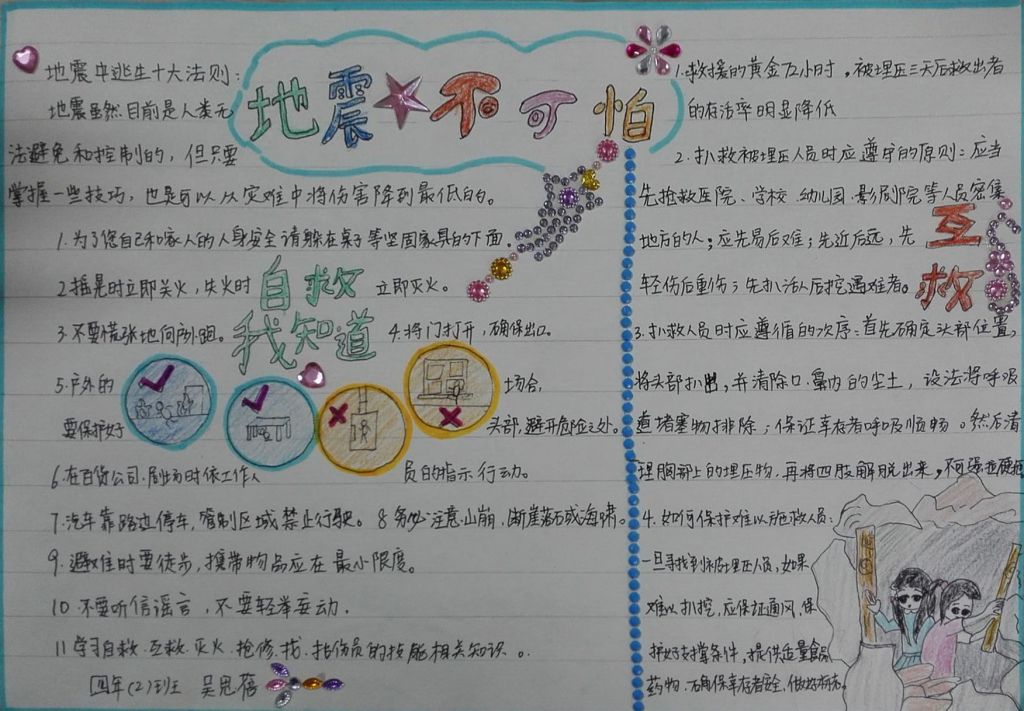 地震不可怕
地震中逃生十大法则:
地震虽然目前是人类无
法避免和控制的，但只要
掌握一些技巧，也是可以从灾难中将伤害降到最低的。
1.为了您自己和家人的人身安全请躲在桌子等坚固家具的下面.
2摇晃时立即关火，失火时 立即灭火。
自救
我知道
3.不要慌张地向户外跑。 4.将门打开，确保出口。
5.户外的 场合，
要保护好 头部，避开危险之处。
6.在百货公司.剧场时依工作人 员的指示行动。
7.汽车靠路边停车，管制区域禁止行驶。 8务必注意山崩，断崖落石或海啸。
9.避难时要徒步，携带物品应在最小限度。
10不要听信谣言，不要轻举妄动.
11学习自救.互救.灭火.抢修.找.抬伤员的技能相关知识。
四年(2)班 吴思蓓
1.救援的黄金72小时，被埋压三天后救出者
的存活率明显降低
2.扒救被埋压人员时应遵守的原则：应当
先抢救医院、学校.幼儿园.影剧院等人员密集
地方的人；应先易后难；先近后远，先
轻伤后重伤；先扒活人后挖遇难者。
互
救
3.扒救人员时应遵循的次序：首先确定头部位置，
将头部扒出，并清除口.鼻内的尘土，设法将呼吸
道堵塞物排除；保证幸存者呼吸顺畅。然后清
理胸部上的埋压物，再将四肢解脱出来，不可强拉硬拖
4.如何保护难以施救人员：
一旦寻找到被埋压人员，如果
难以扒挖，应保证通风，保
护好支撑条件，提供适量食品
药物.确保幸存者安全，做好标志。